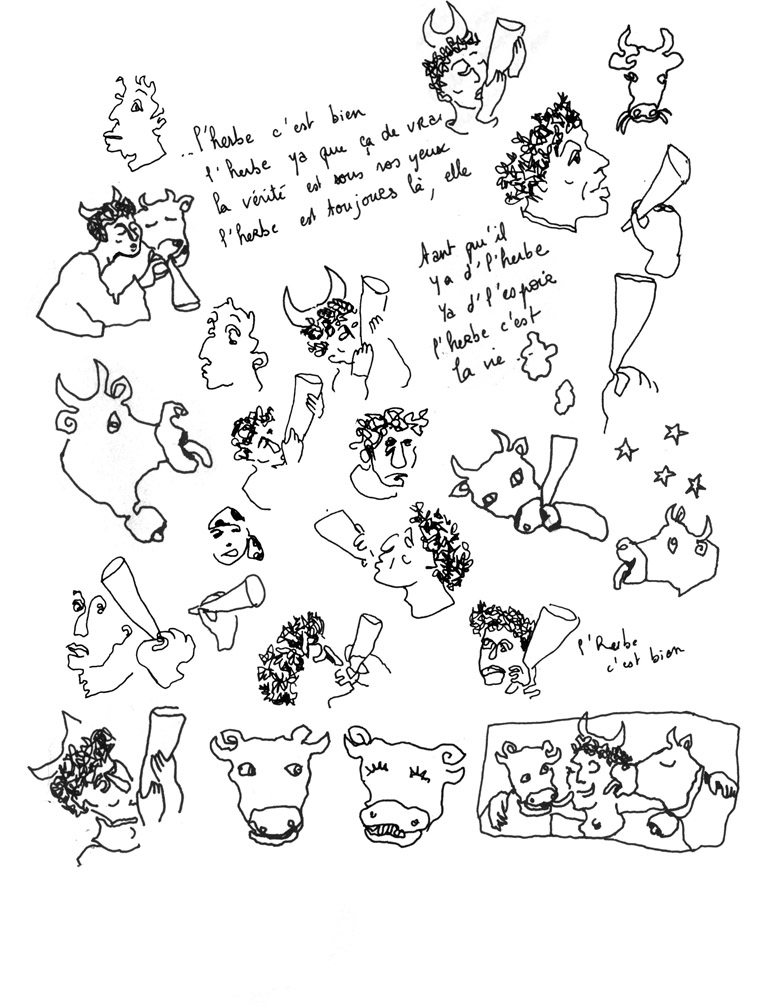 l'herbe c'est bien
l'herbe ya que ça de vrai
la vérité est sous nos yeux
l'herbe est toujours là, elle
tant qu'il
ya d'l'herbe
ya d'l'espoir
l'herbe c'est
la vie
l'herbe
c'est bien